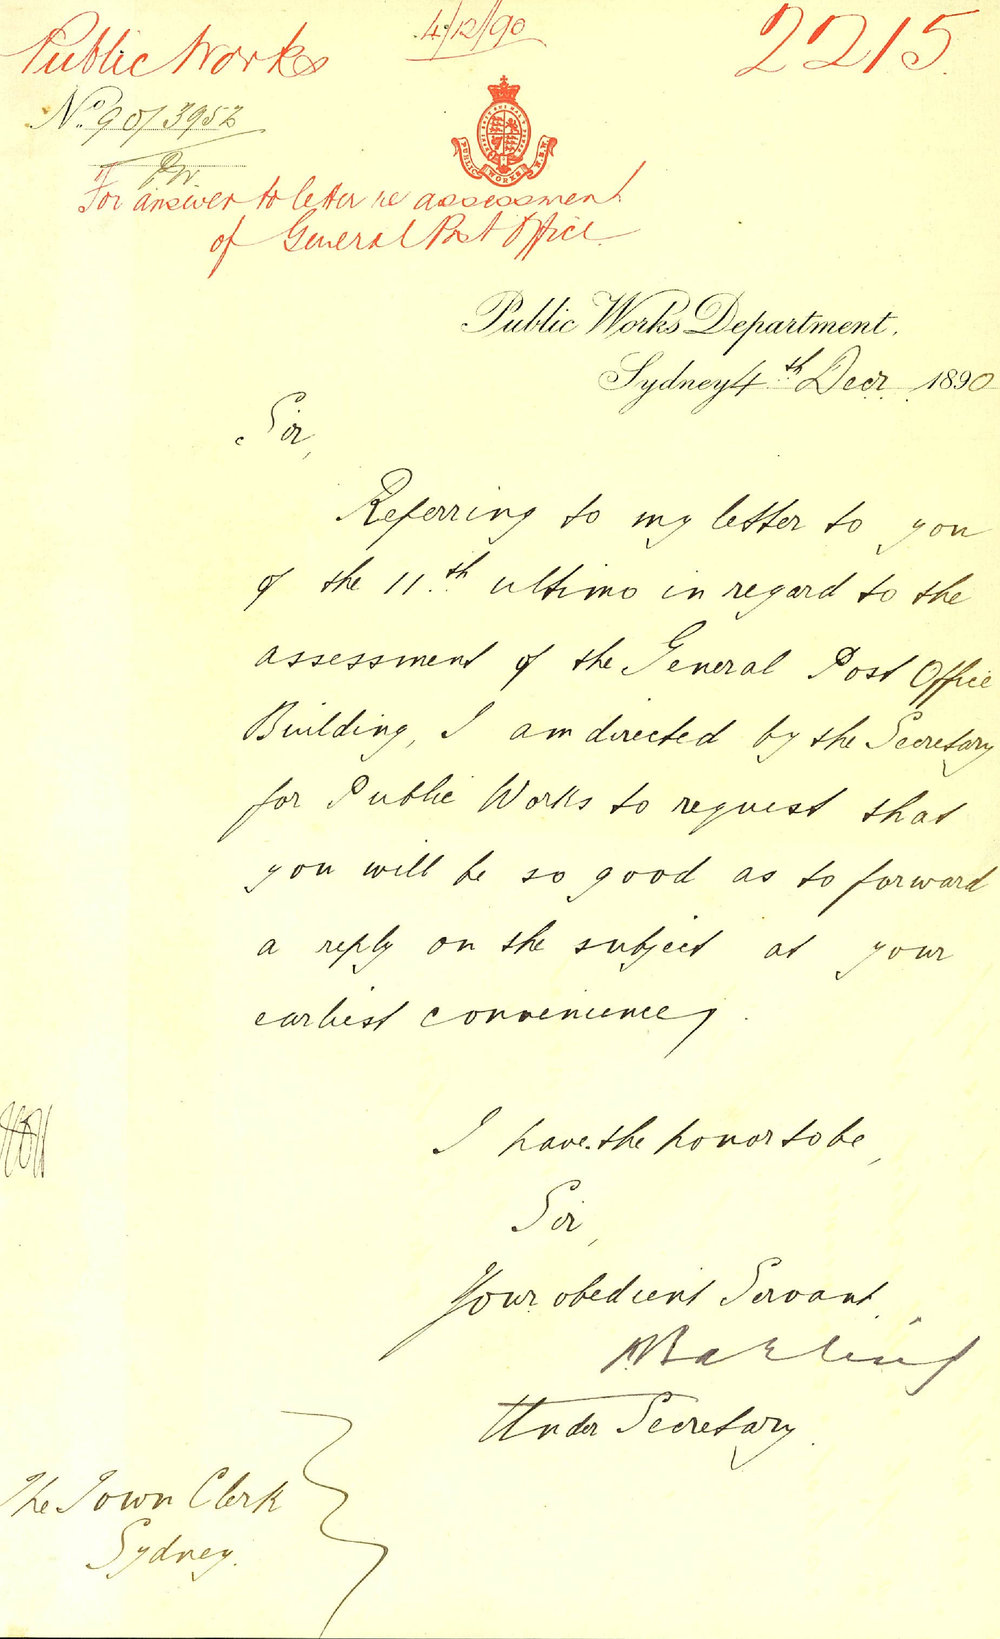 4/12/90
2215
Public Works
No. 90/3952
P.W.
For answer to letter re assessment
of General Post Office
PUBLIC WORKS N.S.W.
Public Works Department,
Sydney 4th Decr. 1890
Sir,
Referring to my letter to you
of the 11th ultimo in regard to the
assessment of the General Post Office
Building, I am directed by the Secretary
for Public Works to request that
you will be so good as to forward
a reply on the subject at your
earliest convenience.
I have the honor to be,
Sir,
Your obedient Servant,
Under Secretary.
The Town Clerk
Sydney.